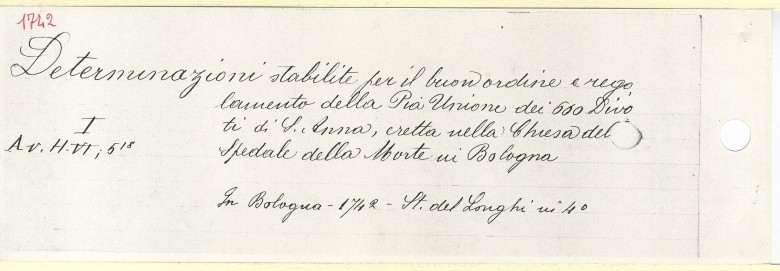 1742
Determinazioni stabilite per il buon ordine e rego
lamento della Pia Unione dei 660 Divo
ti di S. Anna, eretta nella Chiesa del
I
A v. H-VI; 5 18
Spedale della Morte in Bologna
In Bologna - 1742 - St. del Longhi in 4º